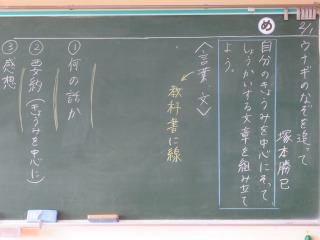 2/1
ウナギのなぞを追って
塚本勝巳
め
自分のきょうみを中心にそって
しょうかいする文章を組み立て
よう。
〈言葉、文〉
教科書に線
①何の話か
②要約(きょうみを中心に)
③感想